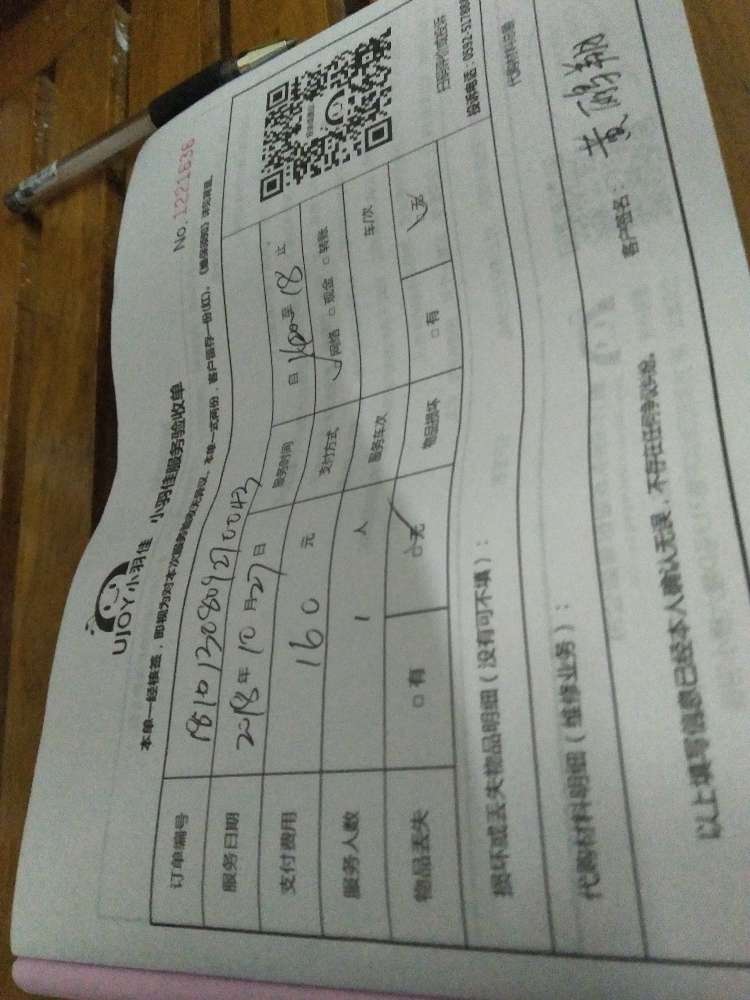 UJOY小羽佳 小羽佳服务验收单
No:1221636
本单一经核签，即视为对本次服务验收无异议。本单一式两份，客户留存一份(红)。
订单编号
服务日期 2018年10月27日 服务时间 自 至 18 止
支付费用 160 元 支付方式 网络 □现金 □转账
服务人数 1 人 服务车次 车/次
物品丢失 □有 □无 物品损坏 □有 无
损坏或丢失物品明细（没有可不填）：
代购材料明细（维修业务）：
以上填写信息已经本人确认无误，不存在任何争议纠纷。
客户签名：黄鸿翔